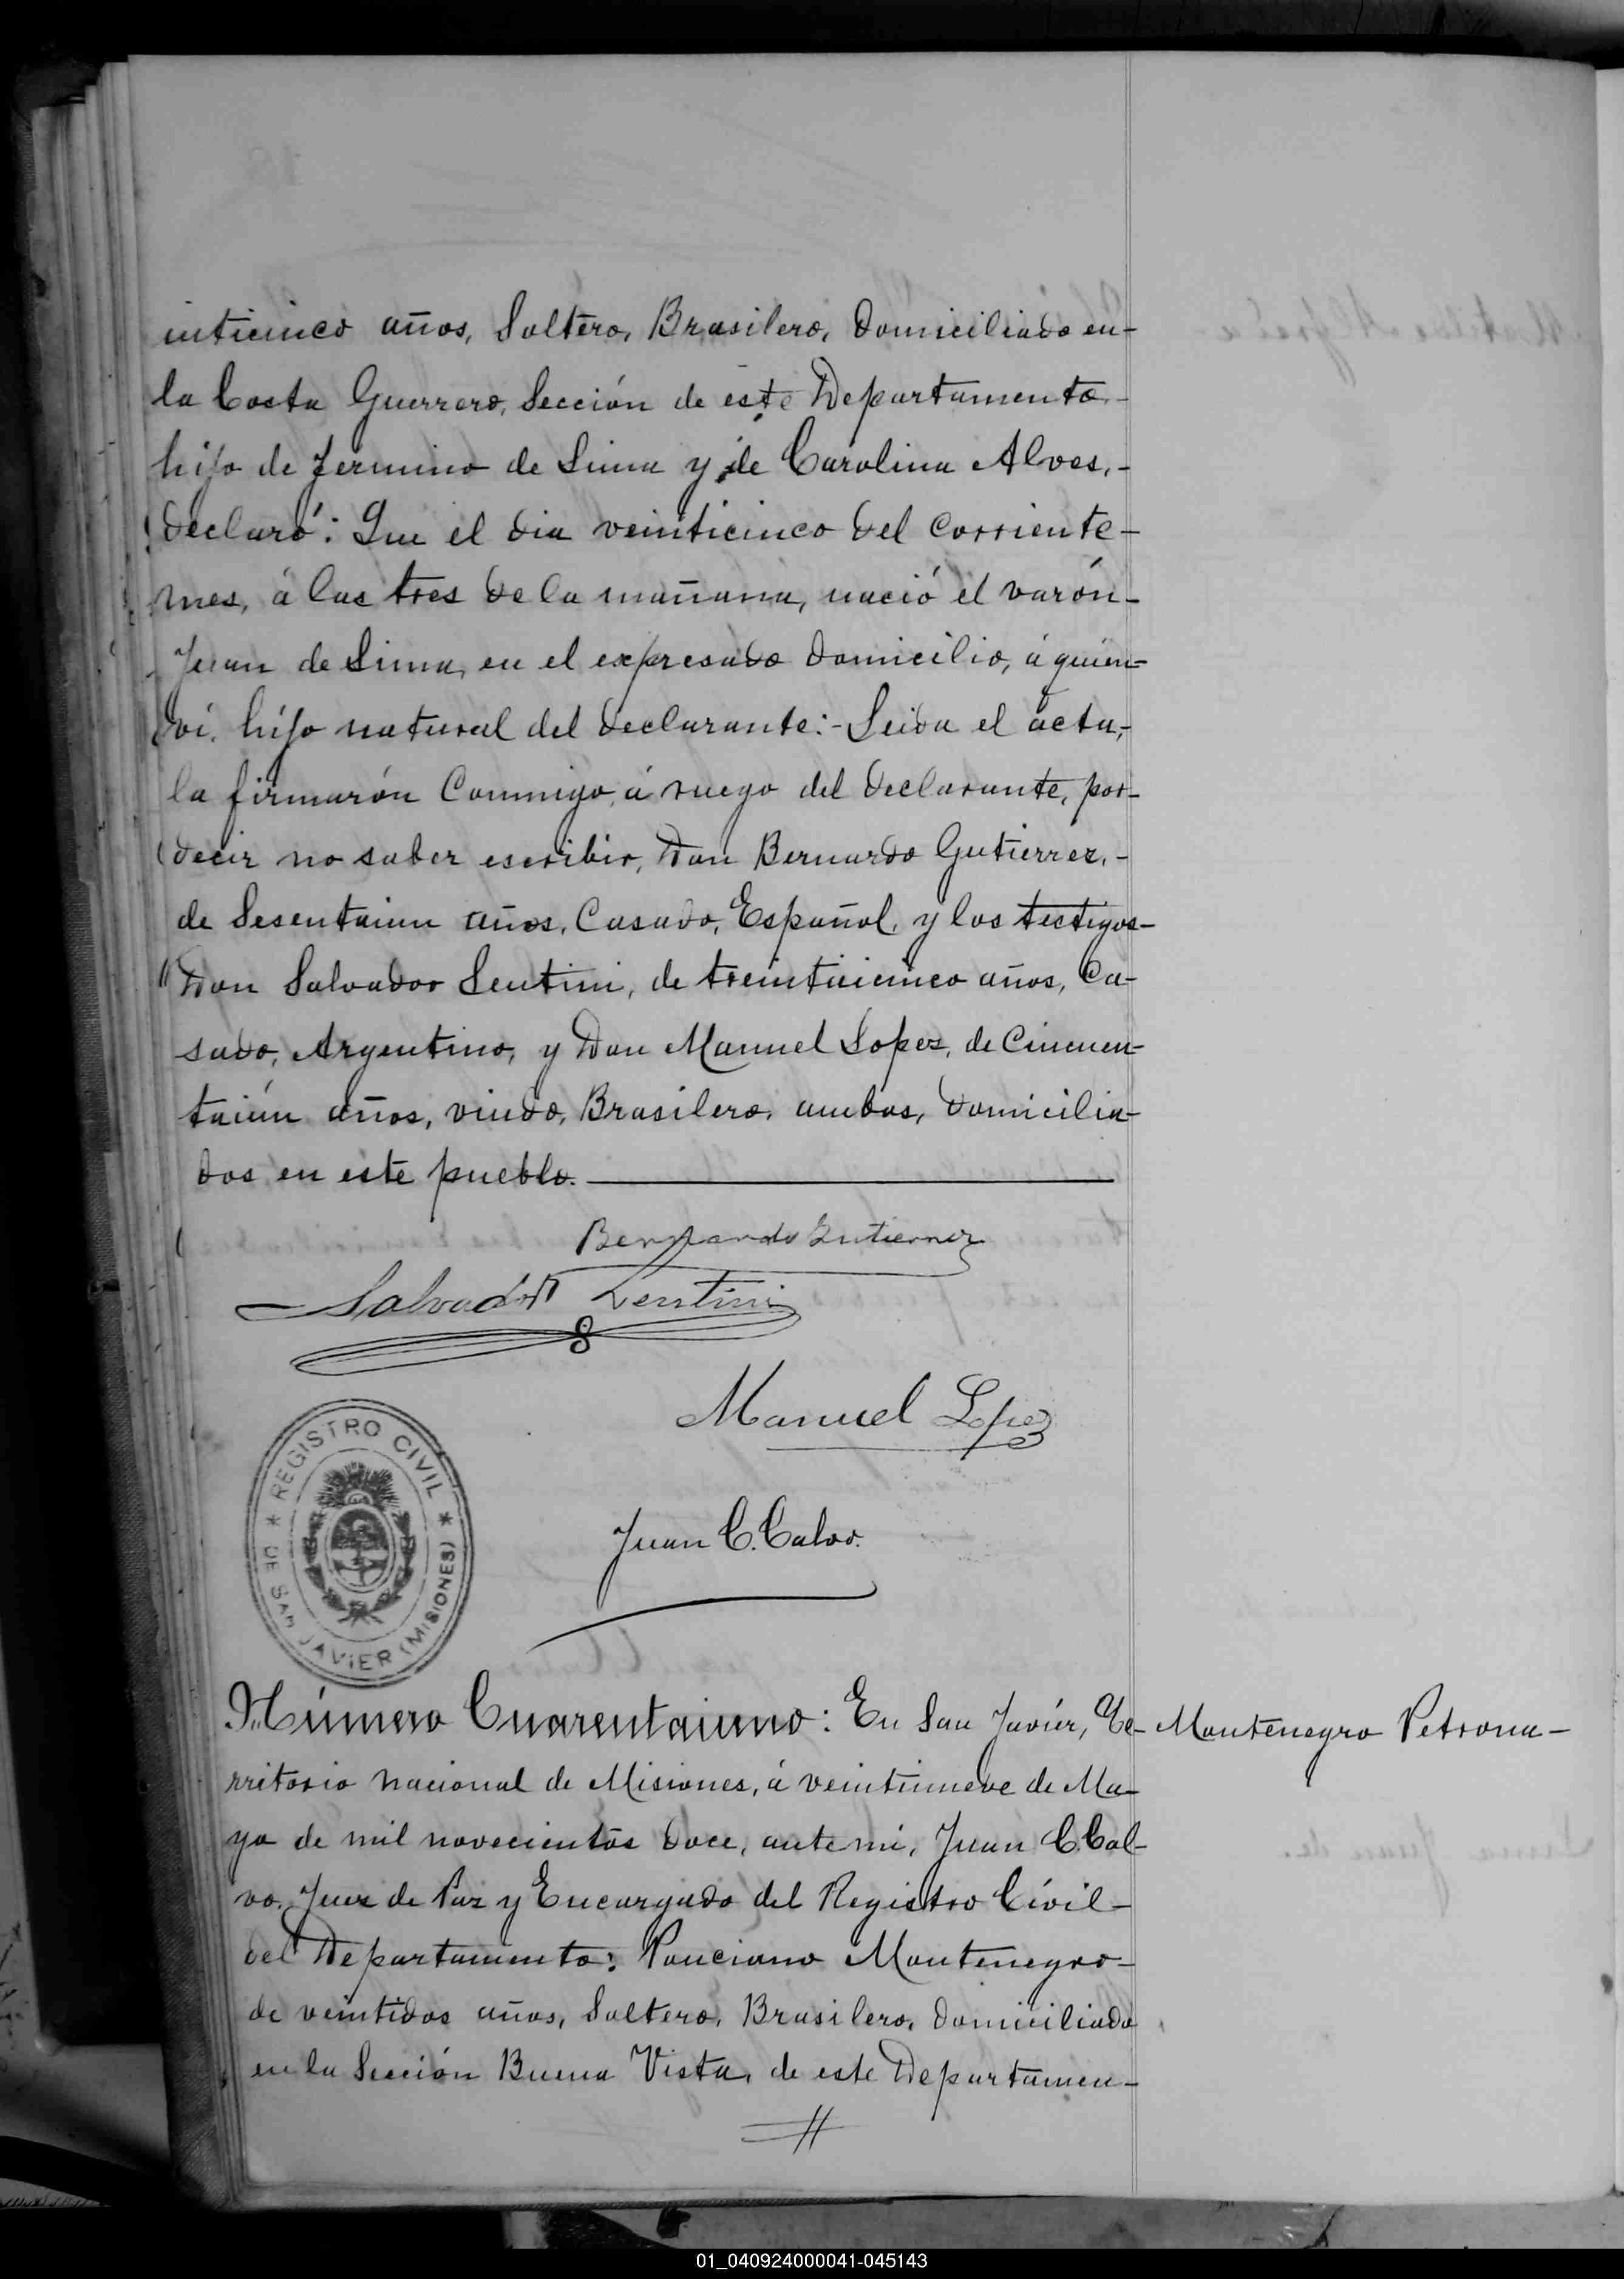 inticinco años, Soltero, Brasilero, domiciliado en-
la Costa Guerrero, Sección de este Departamento.-
hijo de Fermino de Lima y de Carolina Alves,-
declaró: Que el dia veinticinco del corriente-
mes, á las tres de la mañana, nació el varón-
Juan de Lima, en el expresado domicilio, á quien-
ví, hijo natural del declarante:- Leida el acta,-
la firmarón conmigo, á ruego del declarante, por-
decir no saber escribir, Don Bernardo Gutierrez,-
de Sesentaiun años, Casado, Español, y los testigos-
Don Salvador Lentini, de treinticinco años, Ca-
sado, Argentino, y Don Manuel Lopez, de Cincuen-
taiún años, viudo, Brasilero, ambos, domicilia-
dos en este pueblo.
Bernardo Gutierrez
Salvador Lentini
Manuel Lopez
REGISTRO CIVIL
DE SAN JAVIER (MISIONES)
Juan C. Calvo.
Número Cuarentaiuno: En San Javiér, Te-
Montenegro Petrona-
rritorio nacional de Misiones, á veintinueve de Ma-
yo de mil novecientos doce, ante mi, Juan C. Cal-
vo, Juez de Paz y Encargado del Registro Civil-
del Departamento: Ponciano Montenegro-
de veintidos años, Soltero, Brasilero, domiciliado
en la Sección Buena Vista, de este Departamen-
//
01_040924000041-045143